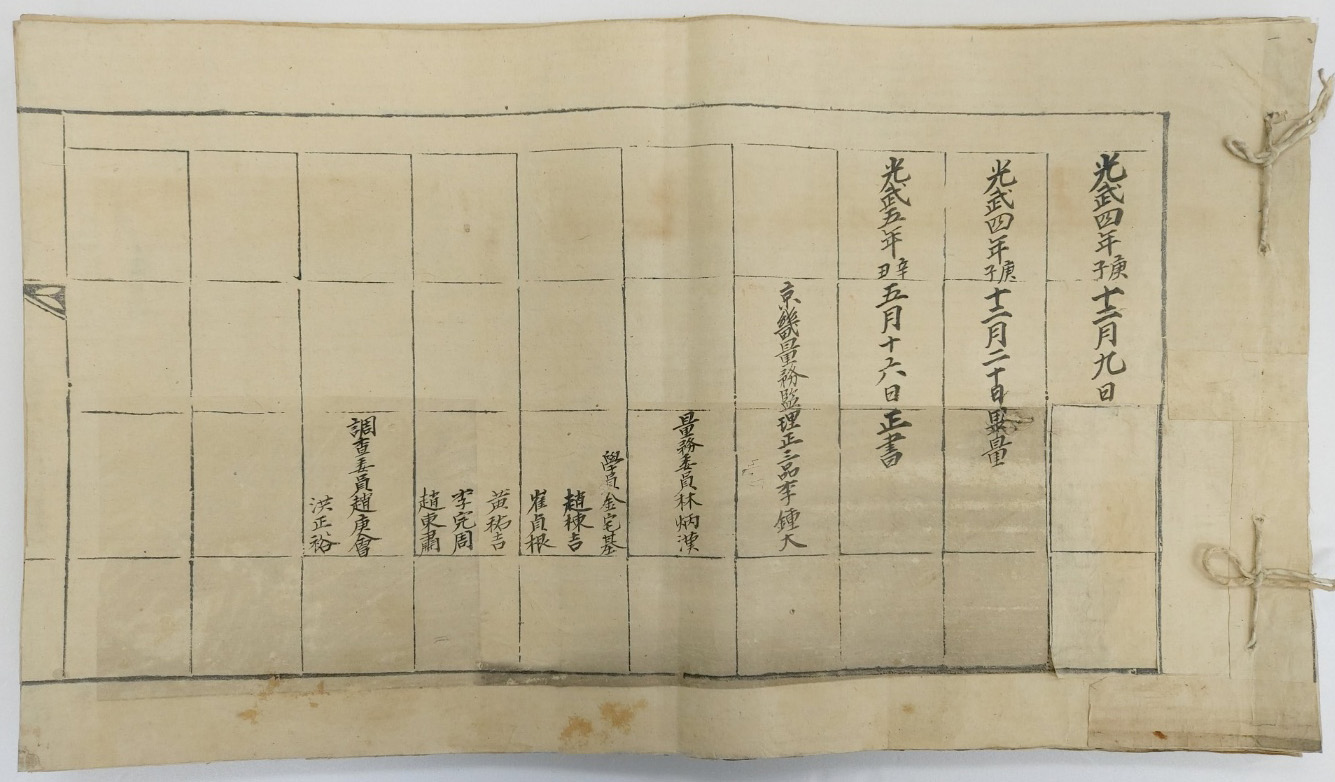 光武四年庚子十二月九日
光武四年庚子十二月二十日畢量
光武五年辛丑五月十六日正書
京畿量務監理正三品李鍾大
量務委員林炳漢
學員金宅基
趙棟吉
崔貞根
黃祐吉
李完周
趙東肅
調查委員趙庚會
洪正裕